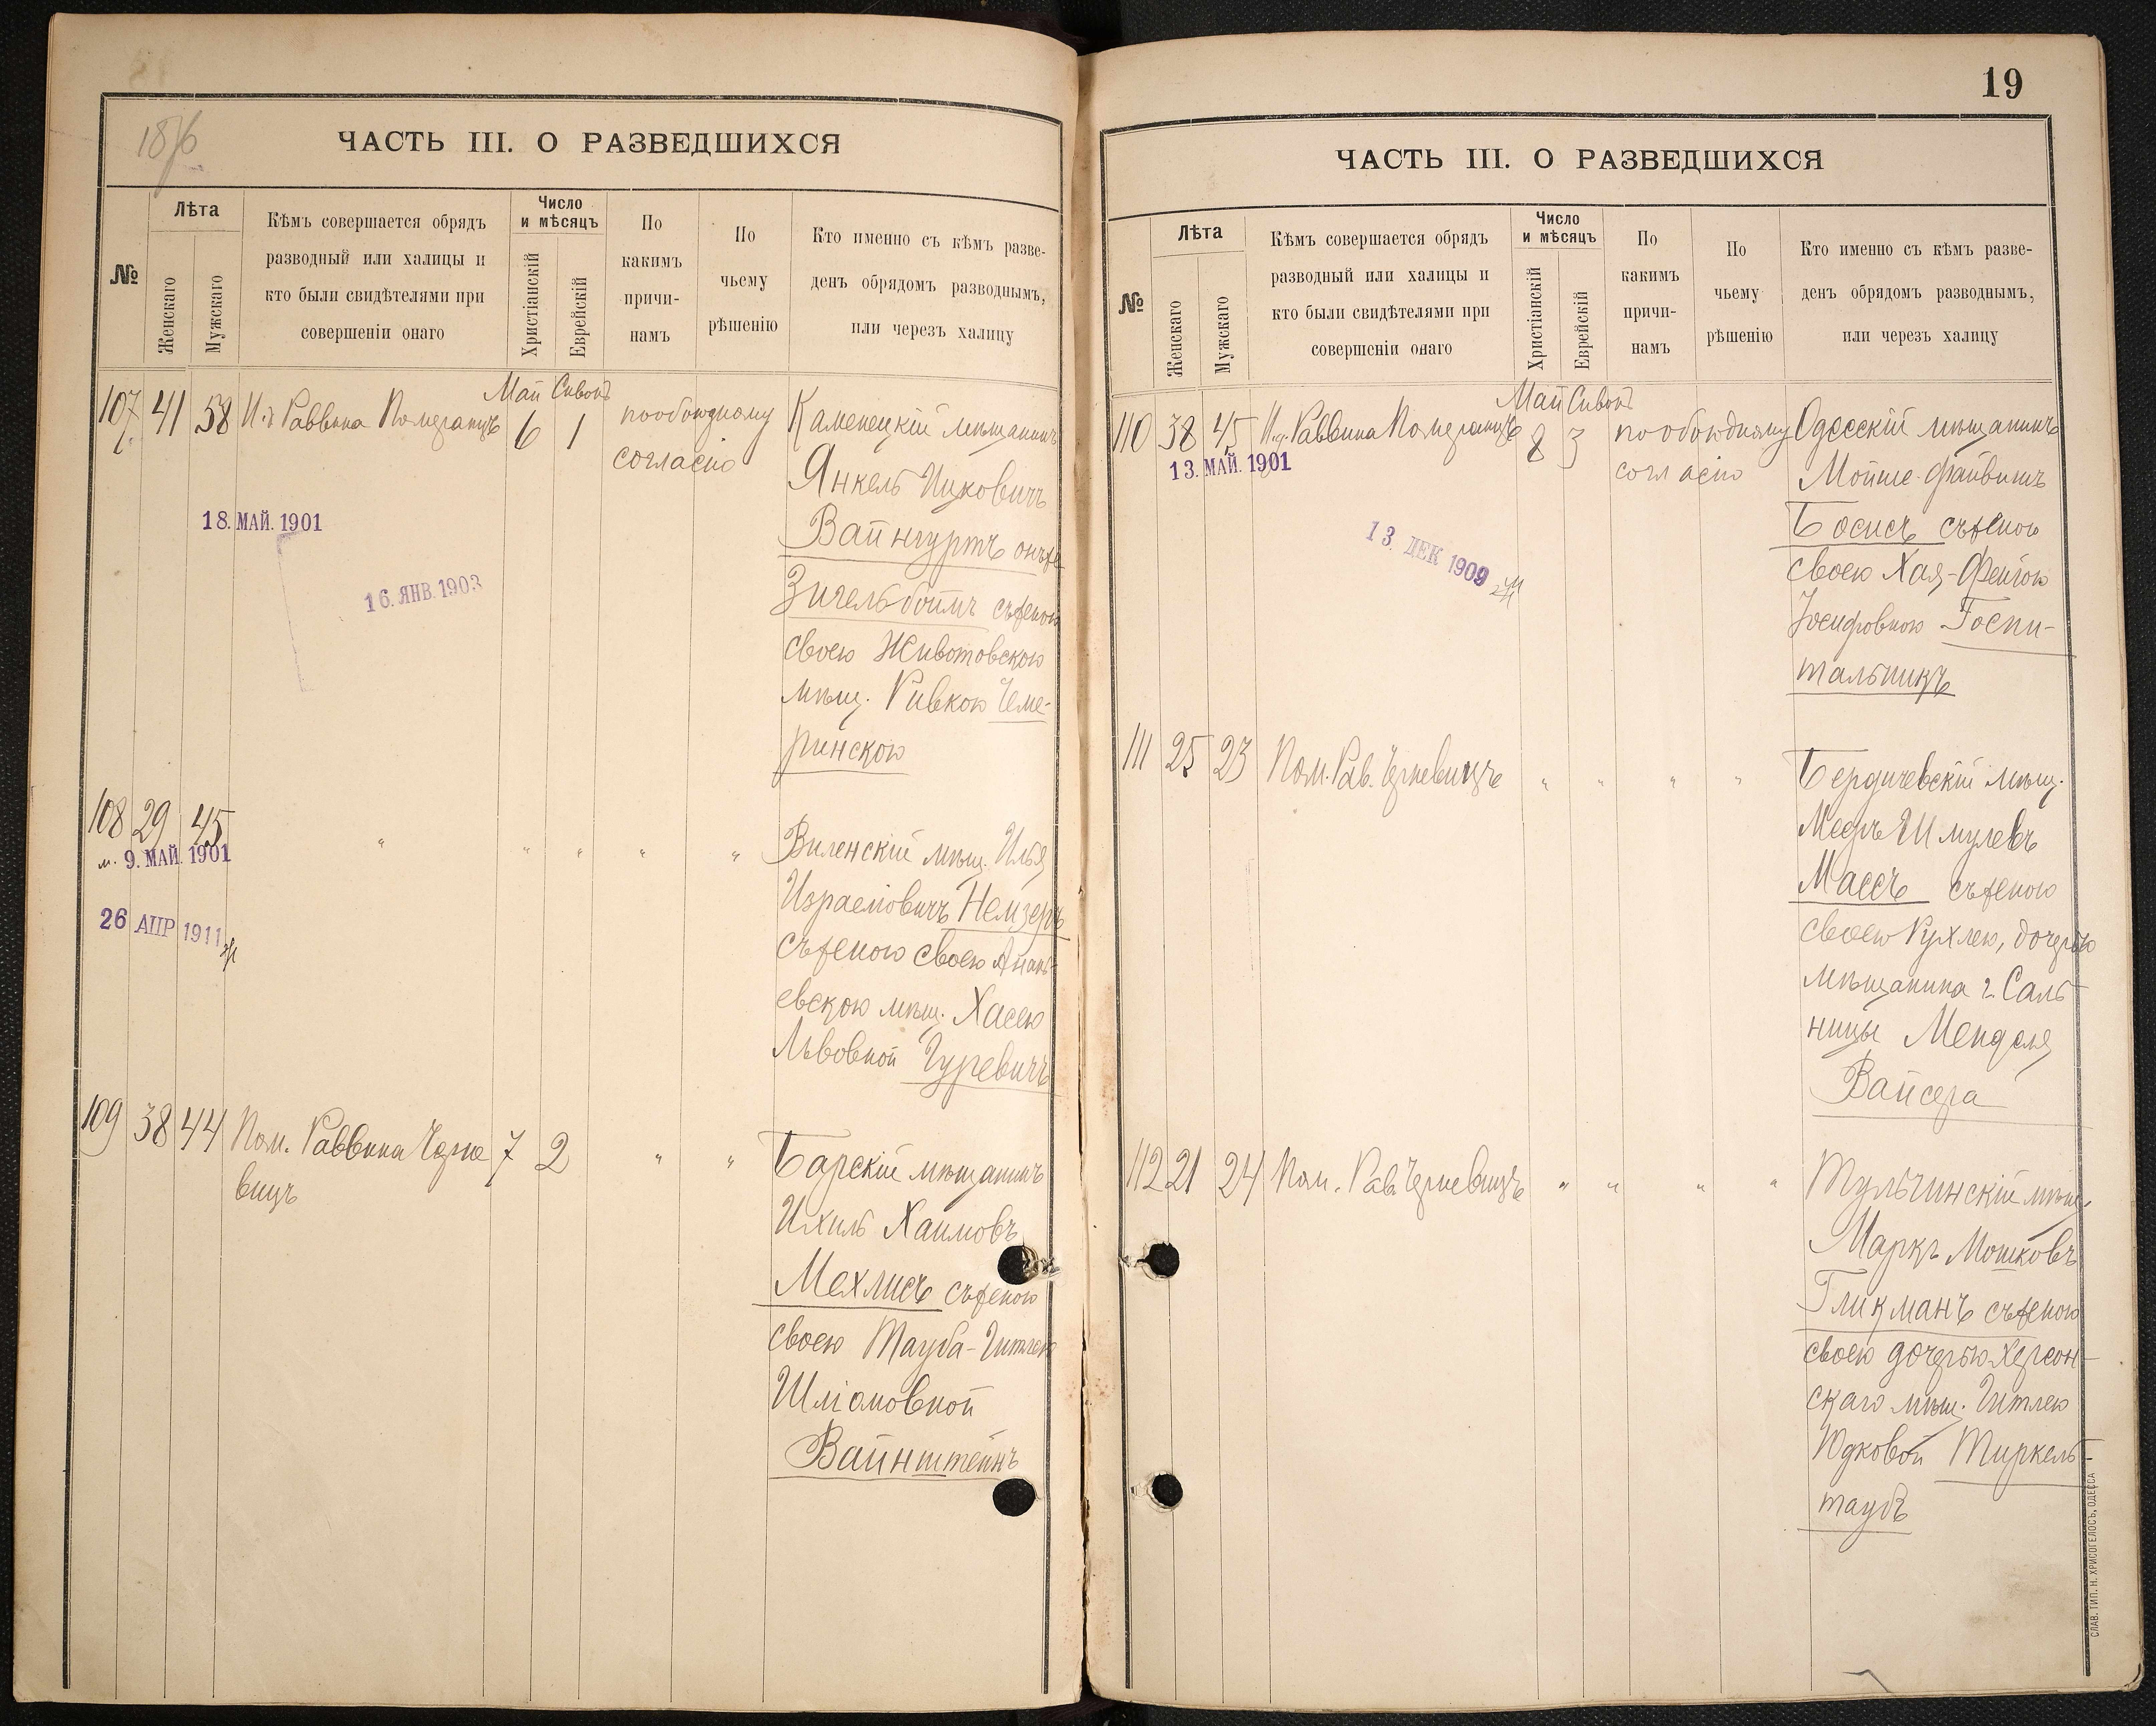 1876
ЧАСТЬ III. О РАЗВЕДШИХСЯ
№
Лѣта
Женскаго
Мужскаго
Кѣмъ совершается обрядъ
разводный или халицы и
кто были свидѣтелями при
совершеніи онаго
Число
и мѣсяцъ
Христіанскій
Еврейскій
По
какимъ
причи-
намъ
По
чьему
рѣшенію
Кто именно съ кѣмъ разве-
денъ обрядомъ разводнымъ,
или черезъ халицу
Май Сивонъ
107 41 58 Раввина Померанцъ 6 1 пообоюдному
согласію
Каменецкій мѣщанинъ
Янкель Ицковичъ
Вайнгуртъ онъже
Зигельбоймъ съженою
своею Животовскою
мѣщ. Ривкою Чеме-
ринскою
18. МАЙ. 1901
16. ЯНВ. 1903
108 29 45 " " " " "
9. МАЙ. 1901
26 АПР 1911
Виленскій мѣщ. Илья
Израеліовичъ Немзеръ
съженою своею Анань-
евскою мѣщ. Хасею
Львовной Гуревичъ
109 38 44 Пом. Раввина Черне 7 2 " "
вицъ
Барскій мѣщанинъ
Ихиль Хаимовъ
Мехлисъ съженою
своею Тауба-Гитлею
Шліомовной
Вайнштейнъ
19
ЧАСТЬ III. О РАЗВЕДШИХСЯ
№
Лѣта
Женскаго
Мужскаго
Кѣмъ совершается обрядъ
разводный или халицы и
кто были свидѣтелями при
совершеніи онаго
Число
и мѣсяцъ
Христіанскій
Еврейскій
По
какимъ
причи-
намъ
По
чьему
рѣшенію
Кто именно съ кѣмъ разве-
денъ обрядомъ разводнымъ,
или черезъ халицу
Май Сивонъ
110 38 45 Раввина Померанцъ 8 3 пообоюдному
согласію
13. МАЙ. 1901
13. ДЕК 1909
Одесскій мѣщанинъ
Мойше-Файвишъ
Босисъ съженою
своею Хая-Фейгою
Іосифовною Госпи-
тальникъ
111 25 23 Пом. Рав. Черневицъ " " " "
Бердичевскій мѣщ.
Мееръ Шмулевъ
Массъ съженою
своею Рухлею, дочерью
мѣщанина г. Саль-
ницы Менделя
Вайсера
112 21 24 Пом. Рав. Черневицъ " " " "
Тульчинскій мѣщ.
Маркъ Мошковъ
Гликманъ съженою
своею дочерью Херсон-
скаго мѣщ. Гитлею
Юдковой Тиркель-
таубъ
СЛАВ. ТИП. Н. ХРИСОГЕЛОСЪ, ОДЕССА